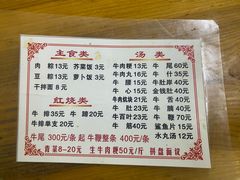 主食类
肉粽13元 芥菜饭3元
豆粽13元 萝卜饭3元
干拌面8元
红烧类
牛排35元 牛蹄20元
牛排单支20元
汤类
牛肉粳13元 牛尾60元
牛肉丸16元 牛什35元
牛腩18元 牛肚岸40元
牛心20元 金钱肚40元
牛肉筑块21元 牛舌40元
牛肚21元 牛肉40元
牛百叶23元 牛鞭70元
牛筋40元 鲨鱼片15元
水丸汤12元
牛尾300元/条起 牛鞭整条400元/条
青菜8–20元 生牛肉粳50元/斤 拼盘面议